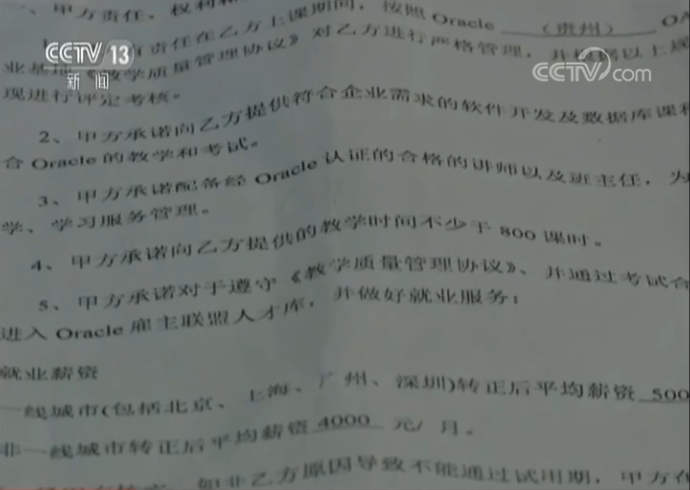 、甲方责任，权利和
CCTV 13
新闻
CCTV.com
有责任在乙方上课期间，按照 Oracle (贵州) OA
业基地《教学质量管理协议》对乙方进行严格管理，并根据以上规
现进行评定考核。
2、甲方承诺向乙方提供符合企业需求的软件开发及数据库课程
合 Oracle 的教学和考试。
3、甲方承诺配备经 Oracle 认证的合格的讲师以及班主任，为
学、学习服务管理。
4、甲方承诺向乙方提供的教学时间不少于 800 课时。
5、甲方承诺对于遵守《教学质量管理协议》、并通过考试合
进入 Oracle 雇主联盟人才库，并做好就业服务：
就业薪资
一线城市(包括北京、上海、广州、深圳)转正后平均薪资 500
非一线城市转正后平均薪资 4000 元/ 月。
如非乙方原因导致不能通过试用期，甲方在